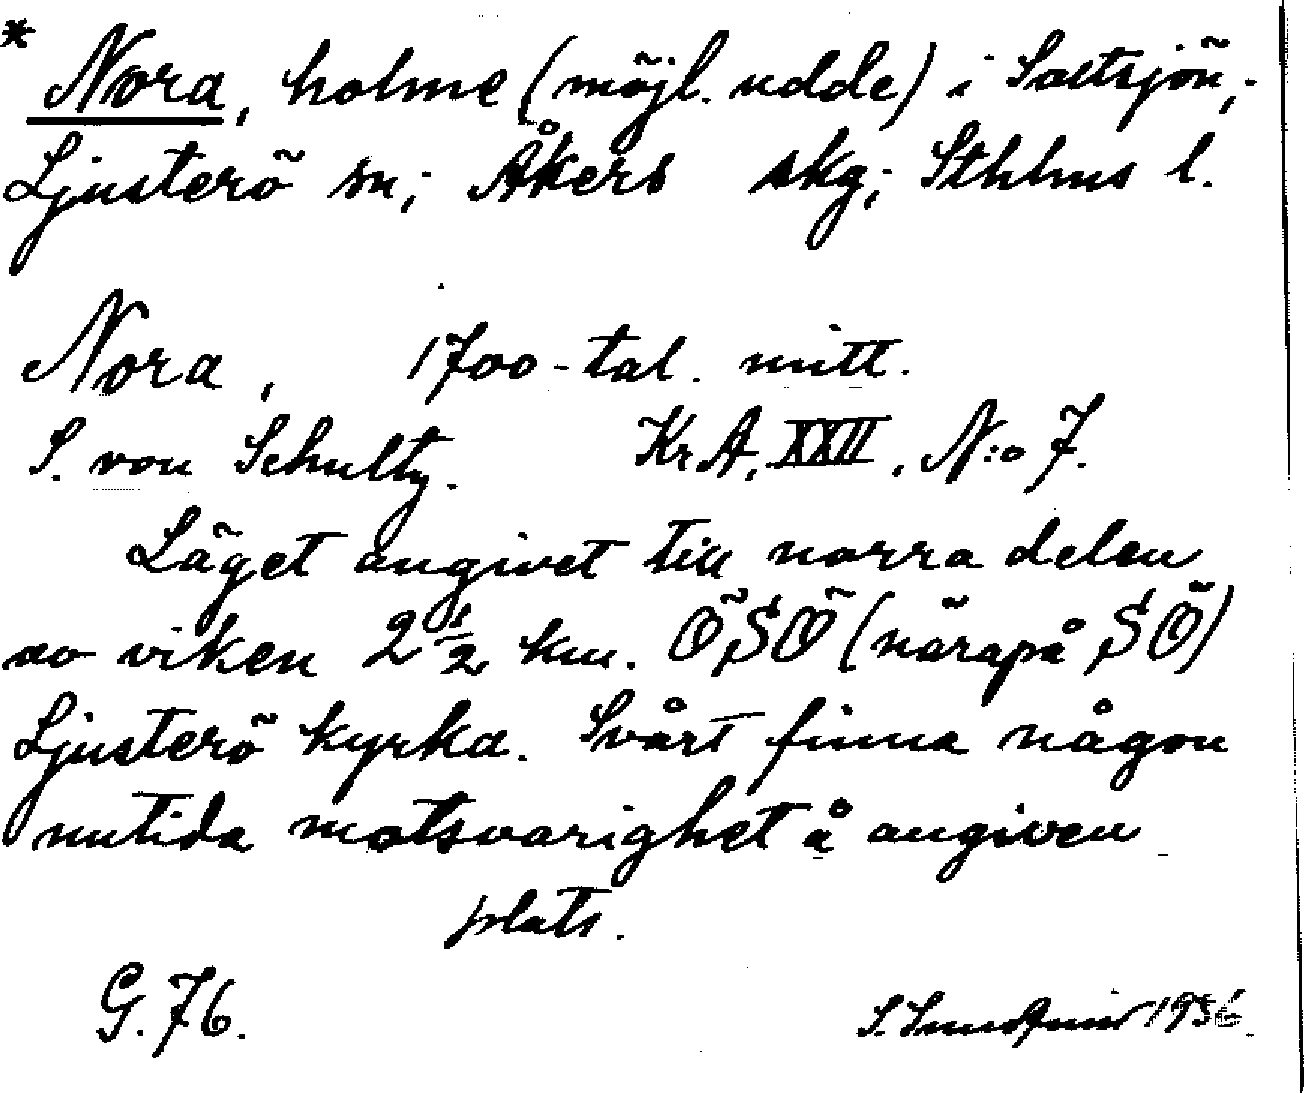 * Nora, holme (möjl. udde) i Saltsjön,
Ljusterö sn; Åkers skg; Sthlms l.
Nora, 1700-tal. mitt.
S. von Schultz. KrA, XXII, N:o 7.
Läget angivet till norra delen
av viken 2 1/2 km. ÖSÖ (närapå SÖ)
Ljusterö kyrka. Svårt finna någon
nutida motsvarighet å angiven
plats.
G. 76.
S. 1936.